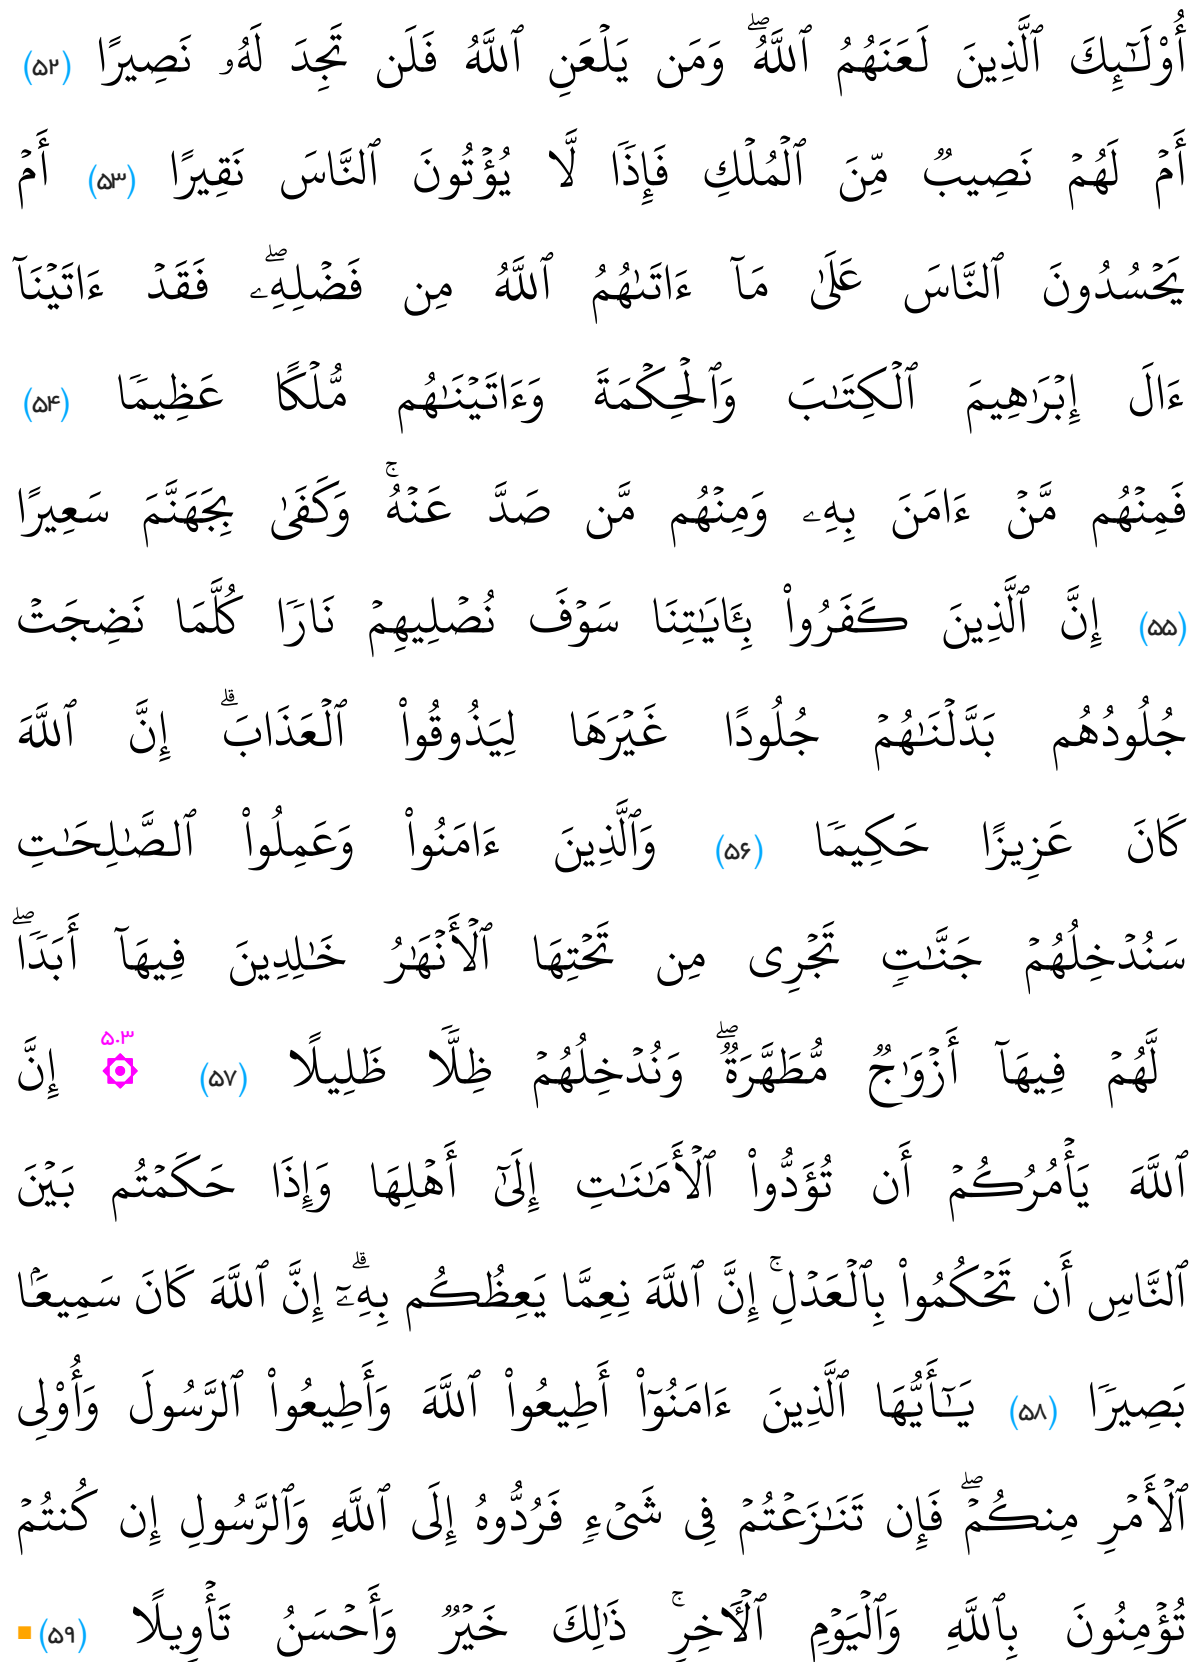 أُوْلَـٰٓئِكَ ٱلَّذِينَ لَعَنَهُمُ ٱللَّهُۖ وَمَن يَلۡعَنِ ٱللَّهُ فَلَن تَجِدَ لَهُۥ نَصِيرًا (۵۲)
أَمۡ لَهُمۡ نَصِيبٌ مِّنَ ٱلۡمُلۡكِ فَإِذٗا لَّا يُؤۡتُونَ ٱلنَّاسَ نَقِيرًا (۵۳) أَمۡ
يَحۡسُدُونَ ٱلنَّاسَ عَلَىٰ مَآ ءَاتَىٰهُمُ ٱللَّهُ مِن فَضۡلِهِۦۖ فَقَدۡ ءَاتَيۡنَآ
ءَالَ إِبۡرَٰهِيمَ ٱلۡكِتَٰبَ وَٱلۡحِكۡمَةَ وَءَاتَيۡنَٰهُم مُّلۡكًا عَظِيمٗا (۵۴)
فَمِنۡهُم مَّنۡ ءَامَنَ بِهِۦ وَمِنۡهُم مَّن صَدَّ عَنۡهُۚ وَكَفَىٰ بِجَهَنَّمَ سَعِيرًا
(۵۵) إِنَّ ٱلَّذِينَ كَفَرُواْ بِـَٔايَٰتِنَا سَوۡفَ نُصۡلِيهِمۡ نَارٗا كُلَّمَا نَضِجَتۡ
جُلُودُهُم بَدَّلۡنَٰهُمۡ جُلُودًا غَيۡرَهَا لِيَذُوقُواْ ٱلۡعَذَابَۗ إِنَّ ٱللَّهَ
كَانَ عَزِيزًا حَكِيمٗا (۵۶) وَٱلَّذِينَ ءَامَنُواْ وَعَمِلُواْ ٱلصَّٰلِحَٰتِ
سَنُدۡخِلُهُمۡ جَنَّٰتٖ تَجۡرِي مِن تَحۡتِهَا ٱلۡأَنۡهَٰرُ خَٰلِدِينَ فِيهَآ أَبَدٗاۖ
لَّهُمۡ فِيهَآ أَزۡوَٰجٞ مُّطَهَّرَةٞۖ وَنُدۡخِلُهُمۡ ظِلّٗا ظَلِيلًا (۵۷) ۵۰۳ ۞ إِنَّ
ٱللَّهَ يَأۡمُرُكُمۡ أَن تُؤَدُّواْ ٱلۡأَمَٰنَٰتِ إِلَىٰٓ أَهۡلِهَا وَإِذَا حَكَمۡتُم بَيۡنَ
ٱلنَّاسِ أَن تَحۡكُمُواْ بِٱلۡعَدۡلِۚ إِنَّ ٱللَّهَ نِعِمَّا يَعِظُكُم بِهِۦٓۗ إِنَّ ٱللَّهَ كَانَ سَمِيعَۢا
بَصِيرٗا (۵۸) يَـٰٓأَيُّهَا ٱلَّذِينَ ءَامَنُوٓاْ أَطِيعُواْ ٱللَّهَ وَأَطِيعُواْ ٱلرَّسُولَ وَأُوْلِي
ٱلۡأَمۡرِ مِنكُمۡۖ فَإِن تَنَٰزَعۡتُمۡ فِي شَيۡءٖ فَرُدُّوهُ إِلَى ٱللَّهِ وَٱلرَّسُولِ إِن كُنتُمۡ
تُؤۡمِنُونَ بِٱللَّهِ وَٱلۡيَوۡمِ ٱلۡأٓخِرِۚ ذَٰلِكَ خَيۡرٞ وَأَحۡسَنُ تَأۡوِيلًا (۵۹)